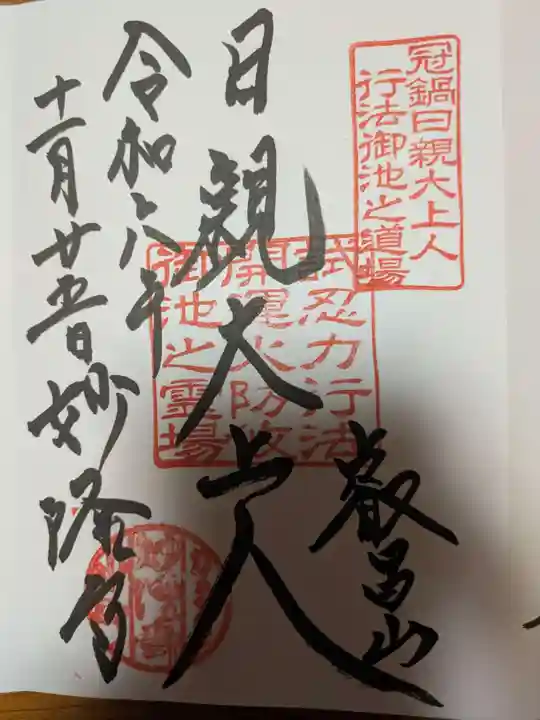 冠鍋日親大上人
行法御池之道場
叡昌山
日親大上人
忍力行法
開運火防
御池之霊場
令和六年
十一月廿五日
妙隆寺